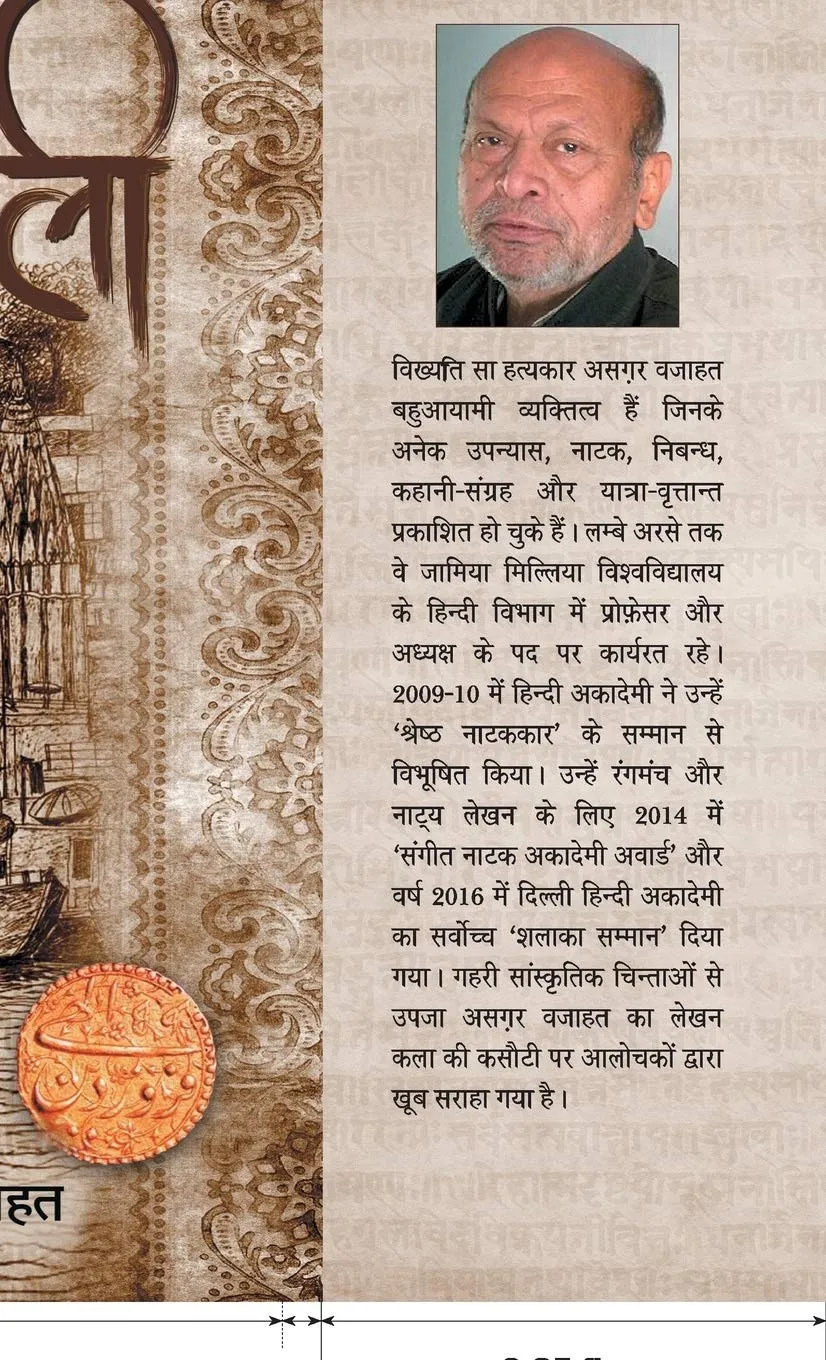 ली
हत
विख्यति सा हत्यकार असग़र वजाहत
बहुआयामी व्यक्तित्व हैं जिनके
अनेक उपन्यास, नाटक, निबन्ध,
कहानी-संग्रह और यात्रा-वृत्तान्त
प्रकाशित हो चुके हैं। लम्बे अरसे तक
वे जामिया मिल्लिया विश्वविद्यालय
के हिन्दी विभाग में प्रोफ़ेसर और
अध्यक्ष के पद पर कार्यरत रहे।
2009-10 में हिन्दी अकादेमी ने उन्हें
‘श्रेष्ठ नाटककार’ के सम्मान से
विभूषित किया। उन्हें रंगमंच और
नाट्य लेखन के लिए 2014 में
‘संगीत नाटक अकादेमी अवार्ड’ और
वर्ष 2016 में दिल्ली हिन्दी अकादेमी
का सर्वोच्च ‘शलाका सम्मान’ दिया
गया। गहरी सांस्कृतिक चिन्ताओं से
उपजा असग़र वजाहत का लेखन
कला की कसौटी पर आलोचकों द्वारा
खूब सराहा गया है।